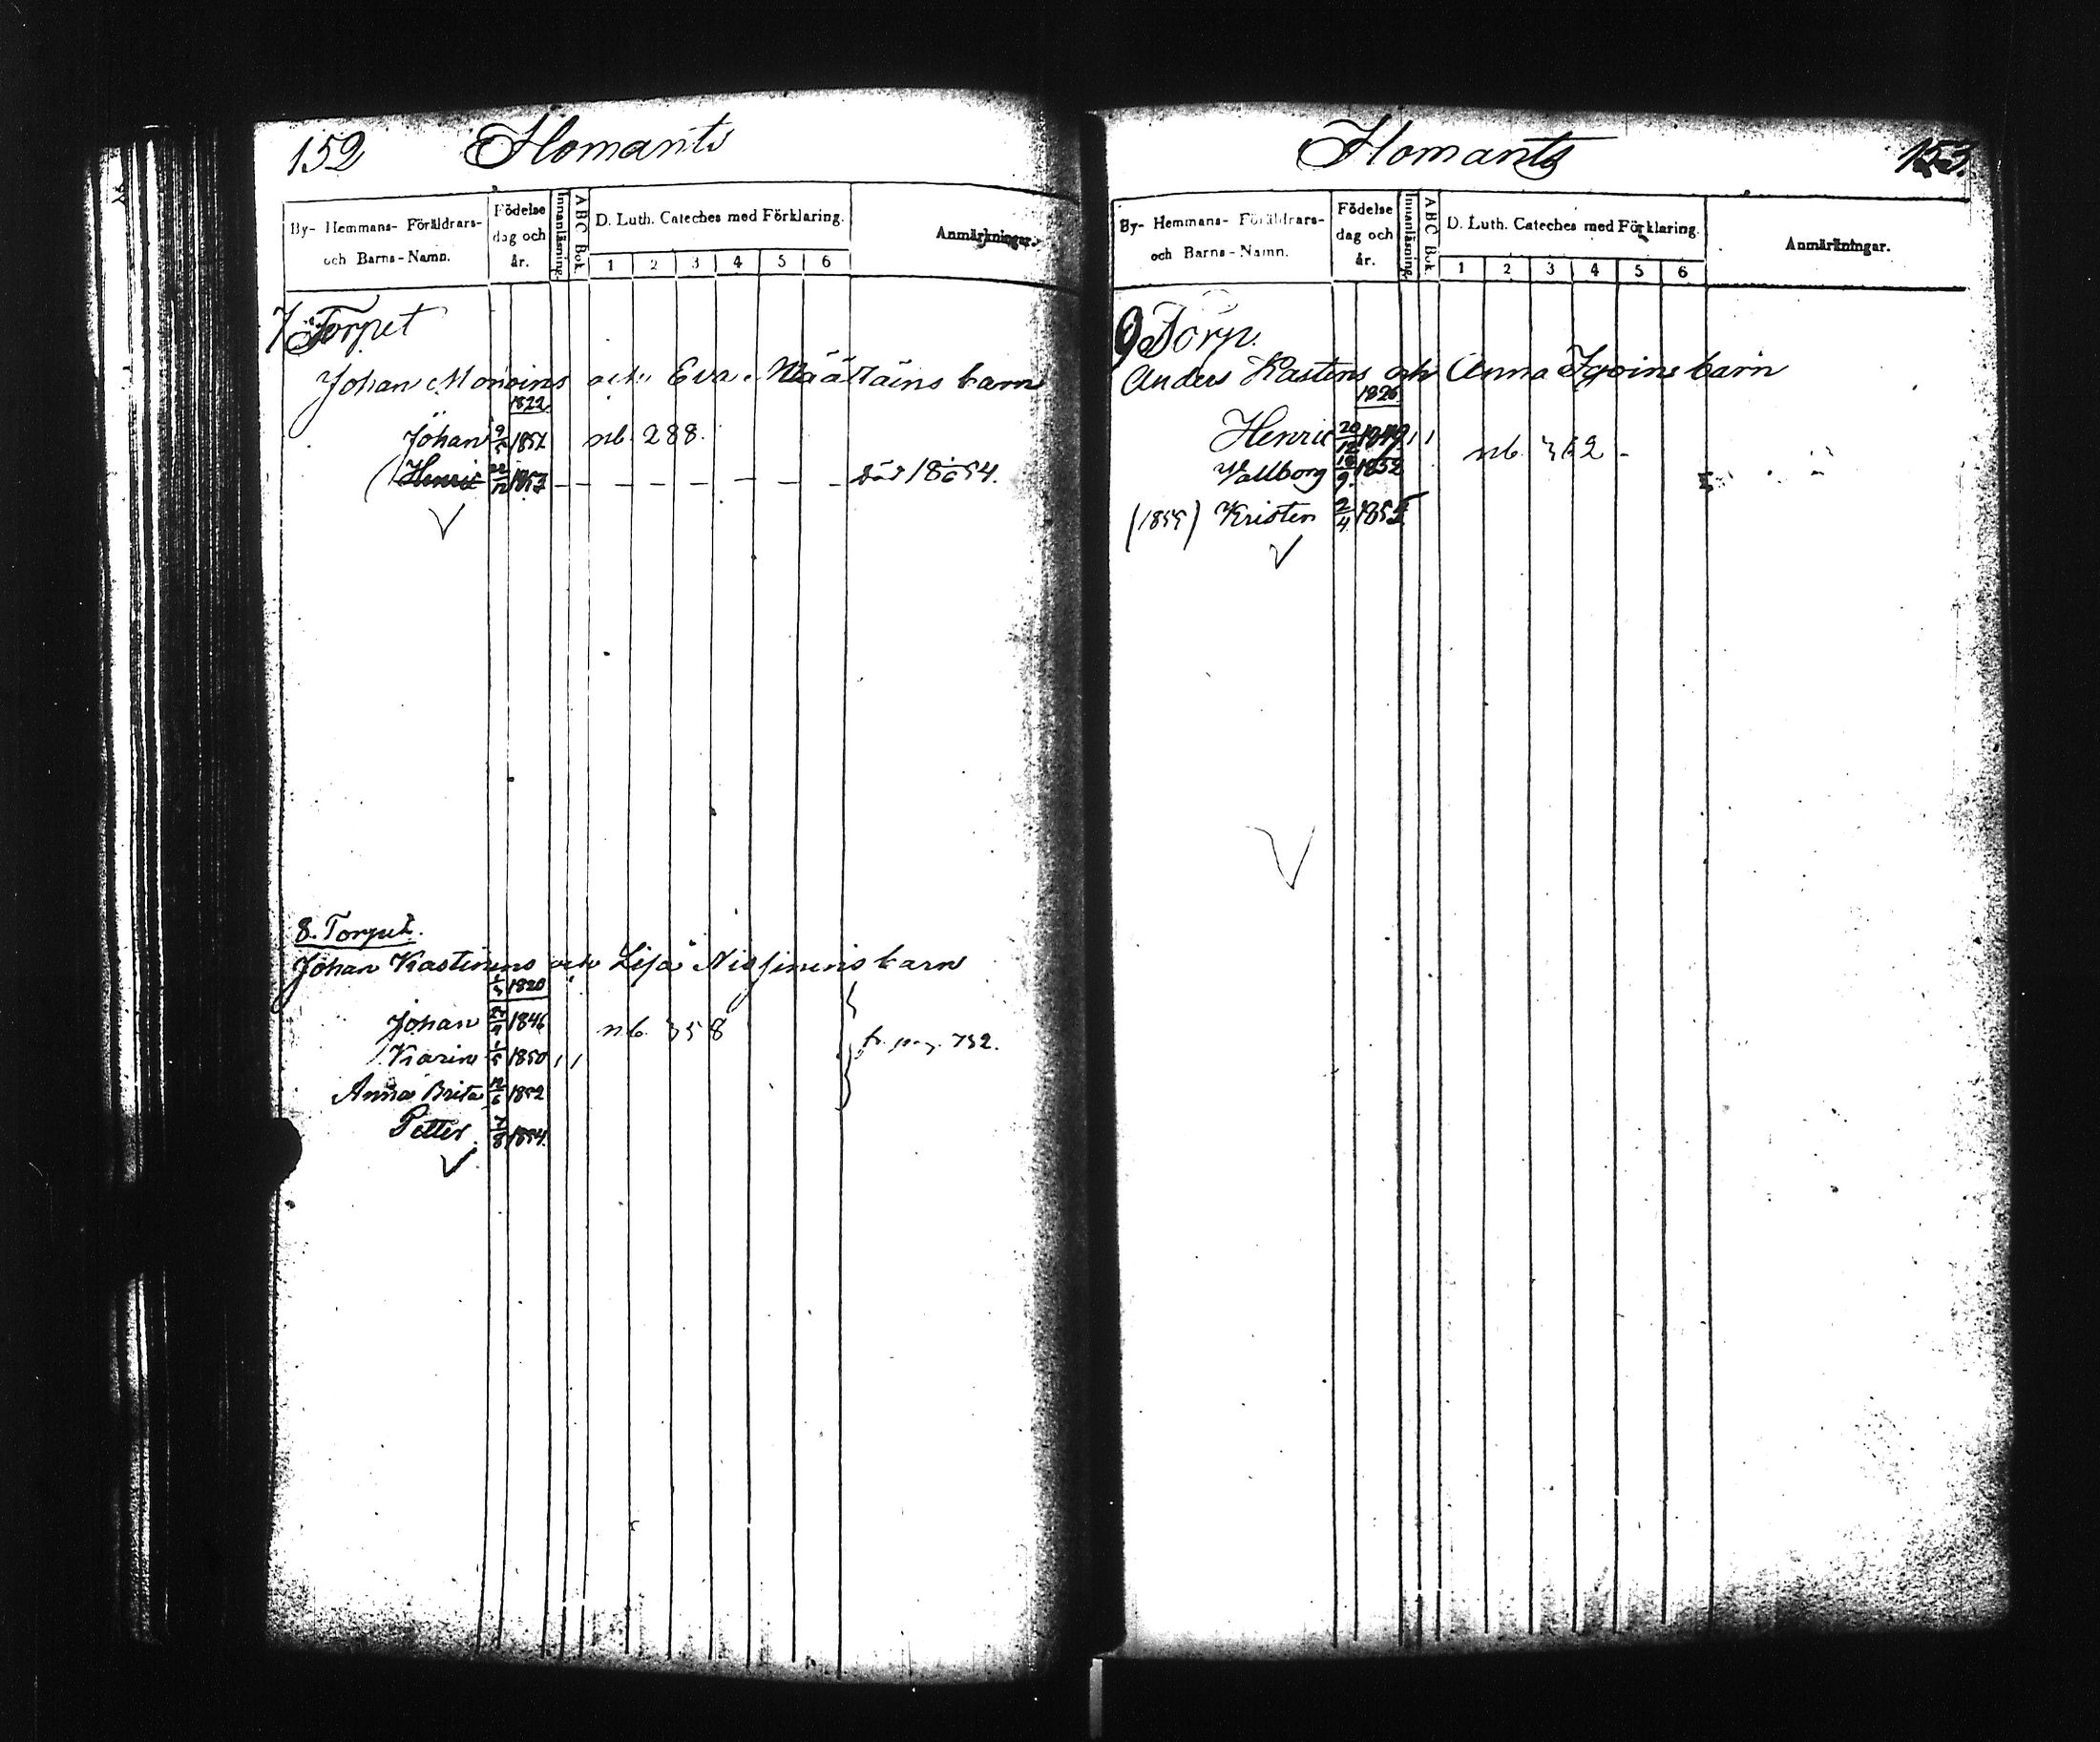 152 Homants
By- Hemmans- Föräldrars- och Barns-Namn. Födelse dag och år. Innanläsning. ABC Bok. D. Luth. Cateches med Förklaring. 1 2 3 4 5 6 Anmärkningar.
7 Torpet
Johan Monoins och Eva Määttäins barn
1822
Johan 9/5 1851 nb. 288.
(Henric 22/12 1853 – – – – – – – död 54.
8. Torpet.
Johan Kastinens och Lisa Nissinens barn
1820
Johan 1846 nb. 358
Karin 1/5 1850 fr. pag. 732.
Anna Brita 12/6 1852
Petter 7/8 1854.
Homants 153.
By- Hemmans- Föräldrars- och Barns-Namn. Födelse dag och år. Innanläsning. ABC Bok. D. Luth. Cateches med Förklaring. 1 2 3 4 5 6 Anmärkningar.
9 Torp.
Anders Kastens och Anna barn
1826
Henric 20/12 1849 nb. 362 -
Vallborg 16/9 1852
(1855) Kristen 2/4 1855